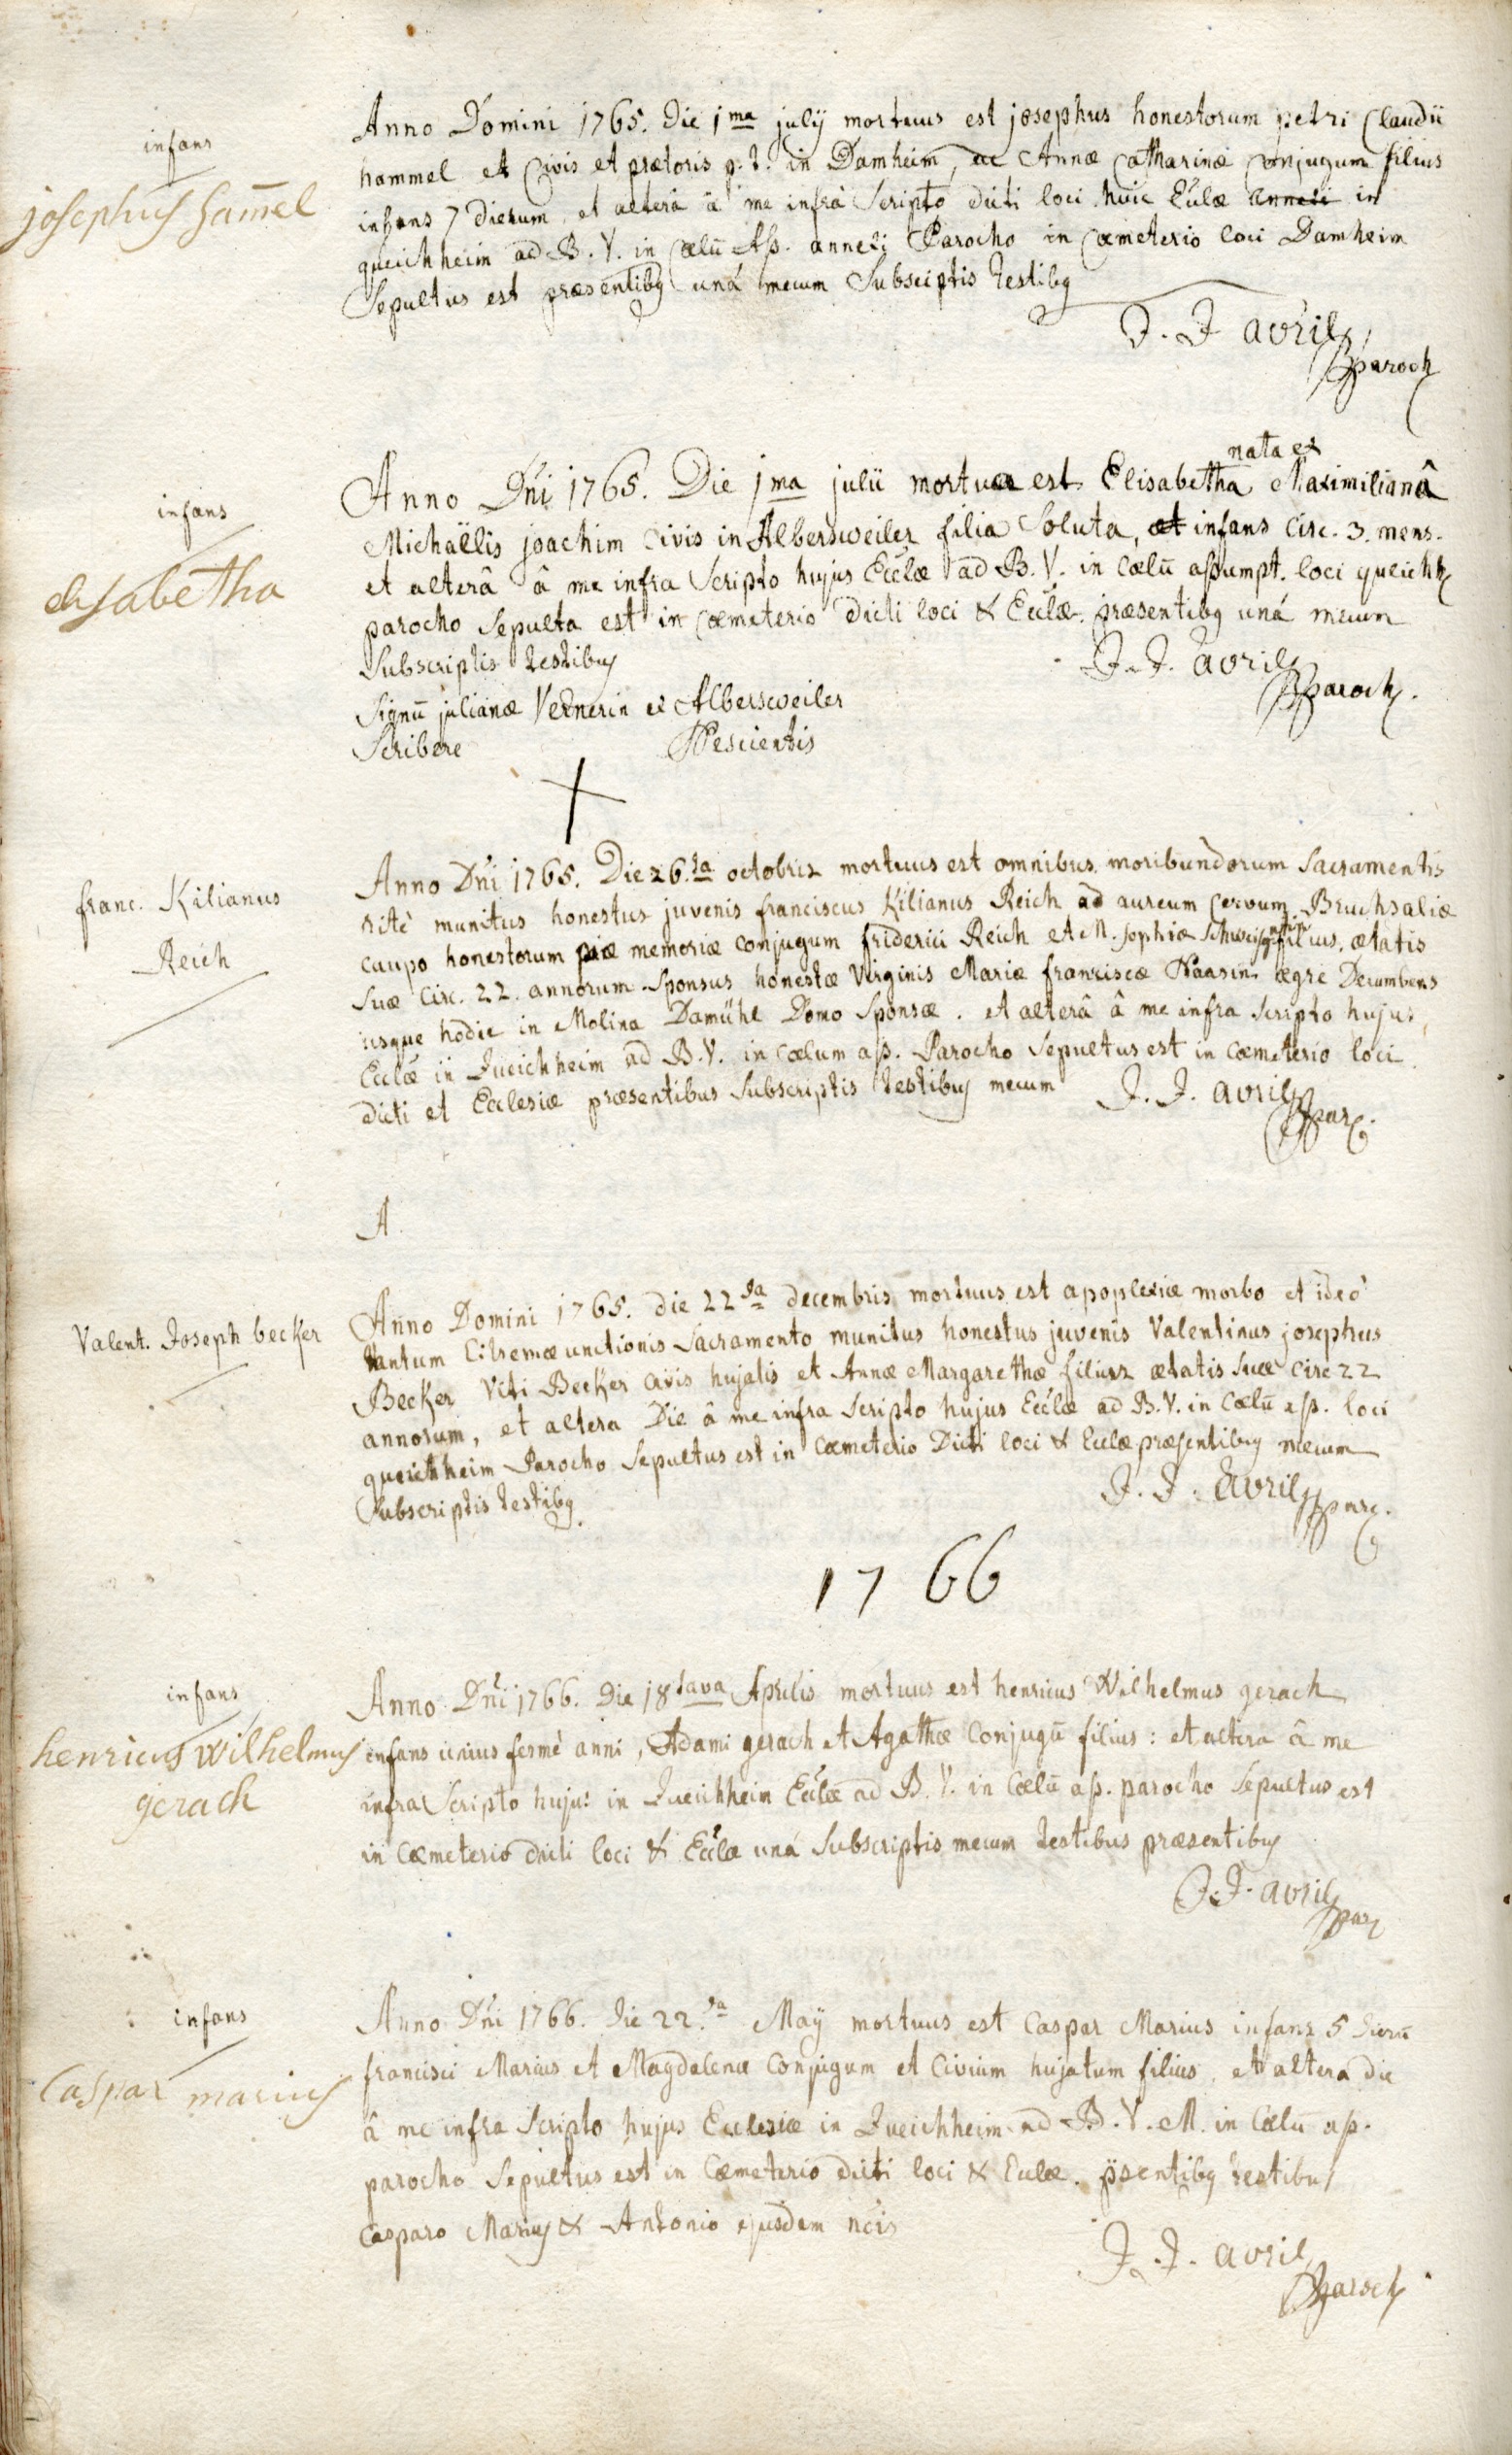 infans
josephus ham̄el
Anno Domini 1765. Die 1ma julÿ mortuus est josephus honestorum petri Claudii
hammel et Civis et prætoris p.t. in Damheim, ac Annæ Catharinæ conjugum filius
infans 7 dierum, et alterâ â me infrà Scripto dicti loci huic Ecclæ annexi in
queichheim ad B. V. in Cœlū Aß. annexi Parocho in Cœmeterio loci Damheim
Sepultus est præsentibg unâ mecum Subsciptis testibg
J. J avril
paroch
infans
elisabetha
nata ex
Anno Dñi 1765. Die 1ma julii mortua est Elisabetha Maximilianâ
Michaëlis joachim Civis in Albersweiler filia Soluta, et infans Circ. 3. mens.
et alterâ â me infra Scripto hujus Ecclæ ad B. V. in Cœlū aßumpt. loci queichh
parocho Sepulta est in Cœmeterio dicti loci & Ecclæ. præsentibg unâ mecum
Subscriptis testibus
J. J. avril
paroch.
Signū julianæ Vernerin ex Albersweiler
Scribere Nescientis
franc. Kilianus
Reich
Anno Dñi 1765. Die 26.ta octobris mortuus est omnibus moribundorum Sacramentis
ritè munitus honestus juvenis franciscus Kilianus Reich ad aureum Cervum Bruchsaliæ
caupo honestorum piæ memoriæ Conjugum friderici Reich et M. Sophiæ filius, ætatis
Suæ Circ. 22. annorum Sponsus honestæ Virginis Mariæ franciscæ Naasin ægre Decumbens
usque hodie in Molina Damühl Domo Sponsæ. et alterâ â me infra Scripto hujus
Ecclæ in Queichheim ad B. V. in Cœlum aß. Parocho Sepultus est in Cœmeterio loci
dicti et Ecclesiæ præsentibus Subscriptis testibus mecum J. J. avril
par.
A
Valent. Joseph becker
Anno Domini 1765. die 22da decembris mortuus est apoplexiæ morbo et ideò
tantum Extremæ unctionis Sacramento munitus honestus juvenis Valentinus josephus
Becker Viti Becker Civis hujatis et Annæ Margarethæ filius ætatis Suæ Circ 22
annorum, et altera Die â me infra Scripto hujus Ecclæ ad B. V. in Cœlū aß. loci
queichheim Parocho Sepultus est in Cœmeterio Dicti loci & Ecclæ præsentibus mecum
Subscriptis testibg
J. J. avril par.
1766
infans
henricus wilhelmus
gerach
Anno Dñi 1766. Die 18tava Aprilis mortuus est henricus Wilhelmus gerach
infans unius fermè anni, Adami gerach et Agathæ Conjugū filius: et altera â me
infra Scripto hujus in Queichheim Ecclæ ad B. V. in Cœlū aß. parocho Sepultus est
in Cœmeterio dicti loci & Ecclæ unâ Subscriptis mecum testibus præsentibus
J. J. avril
par
infans
Caspar marius
Anno Dñi 1766. Die 22.da Maÿ mortuus est Caspar Marius infans 5 dierū
francisci Marius et Magdalenæ Conjugum et Civium hujatum filius, et altera die
â me infra Scripto hujus Ecclesiæ in Queichheim ad B. V. M. in Cœlū aß.
parocho Sepultus est in Cœmeterio dicti loci & Ecclæ. p̈sentibg testibus
Casparo Marius & Antonio ejusdem nois
J. J. avril
paroch